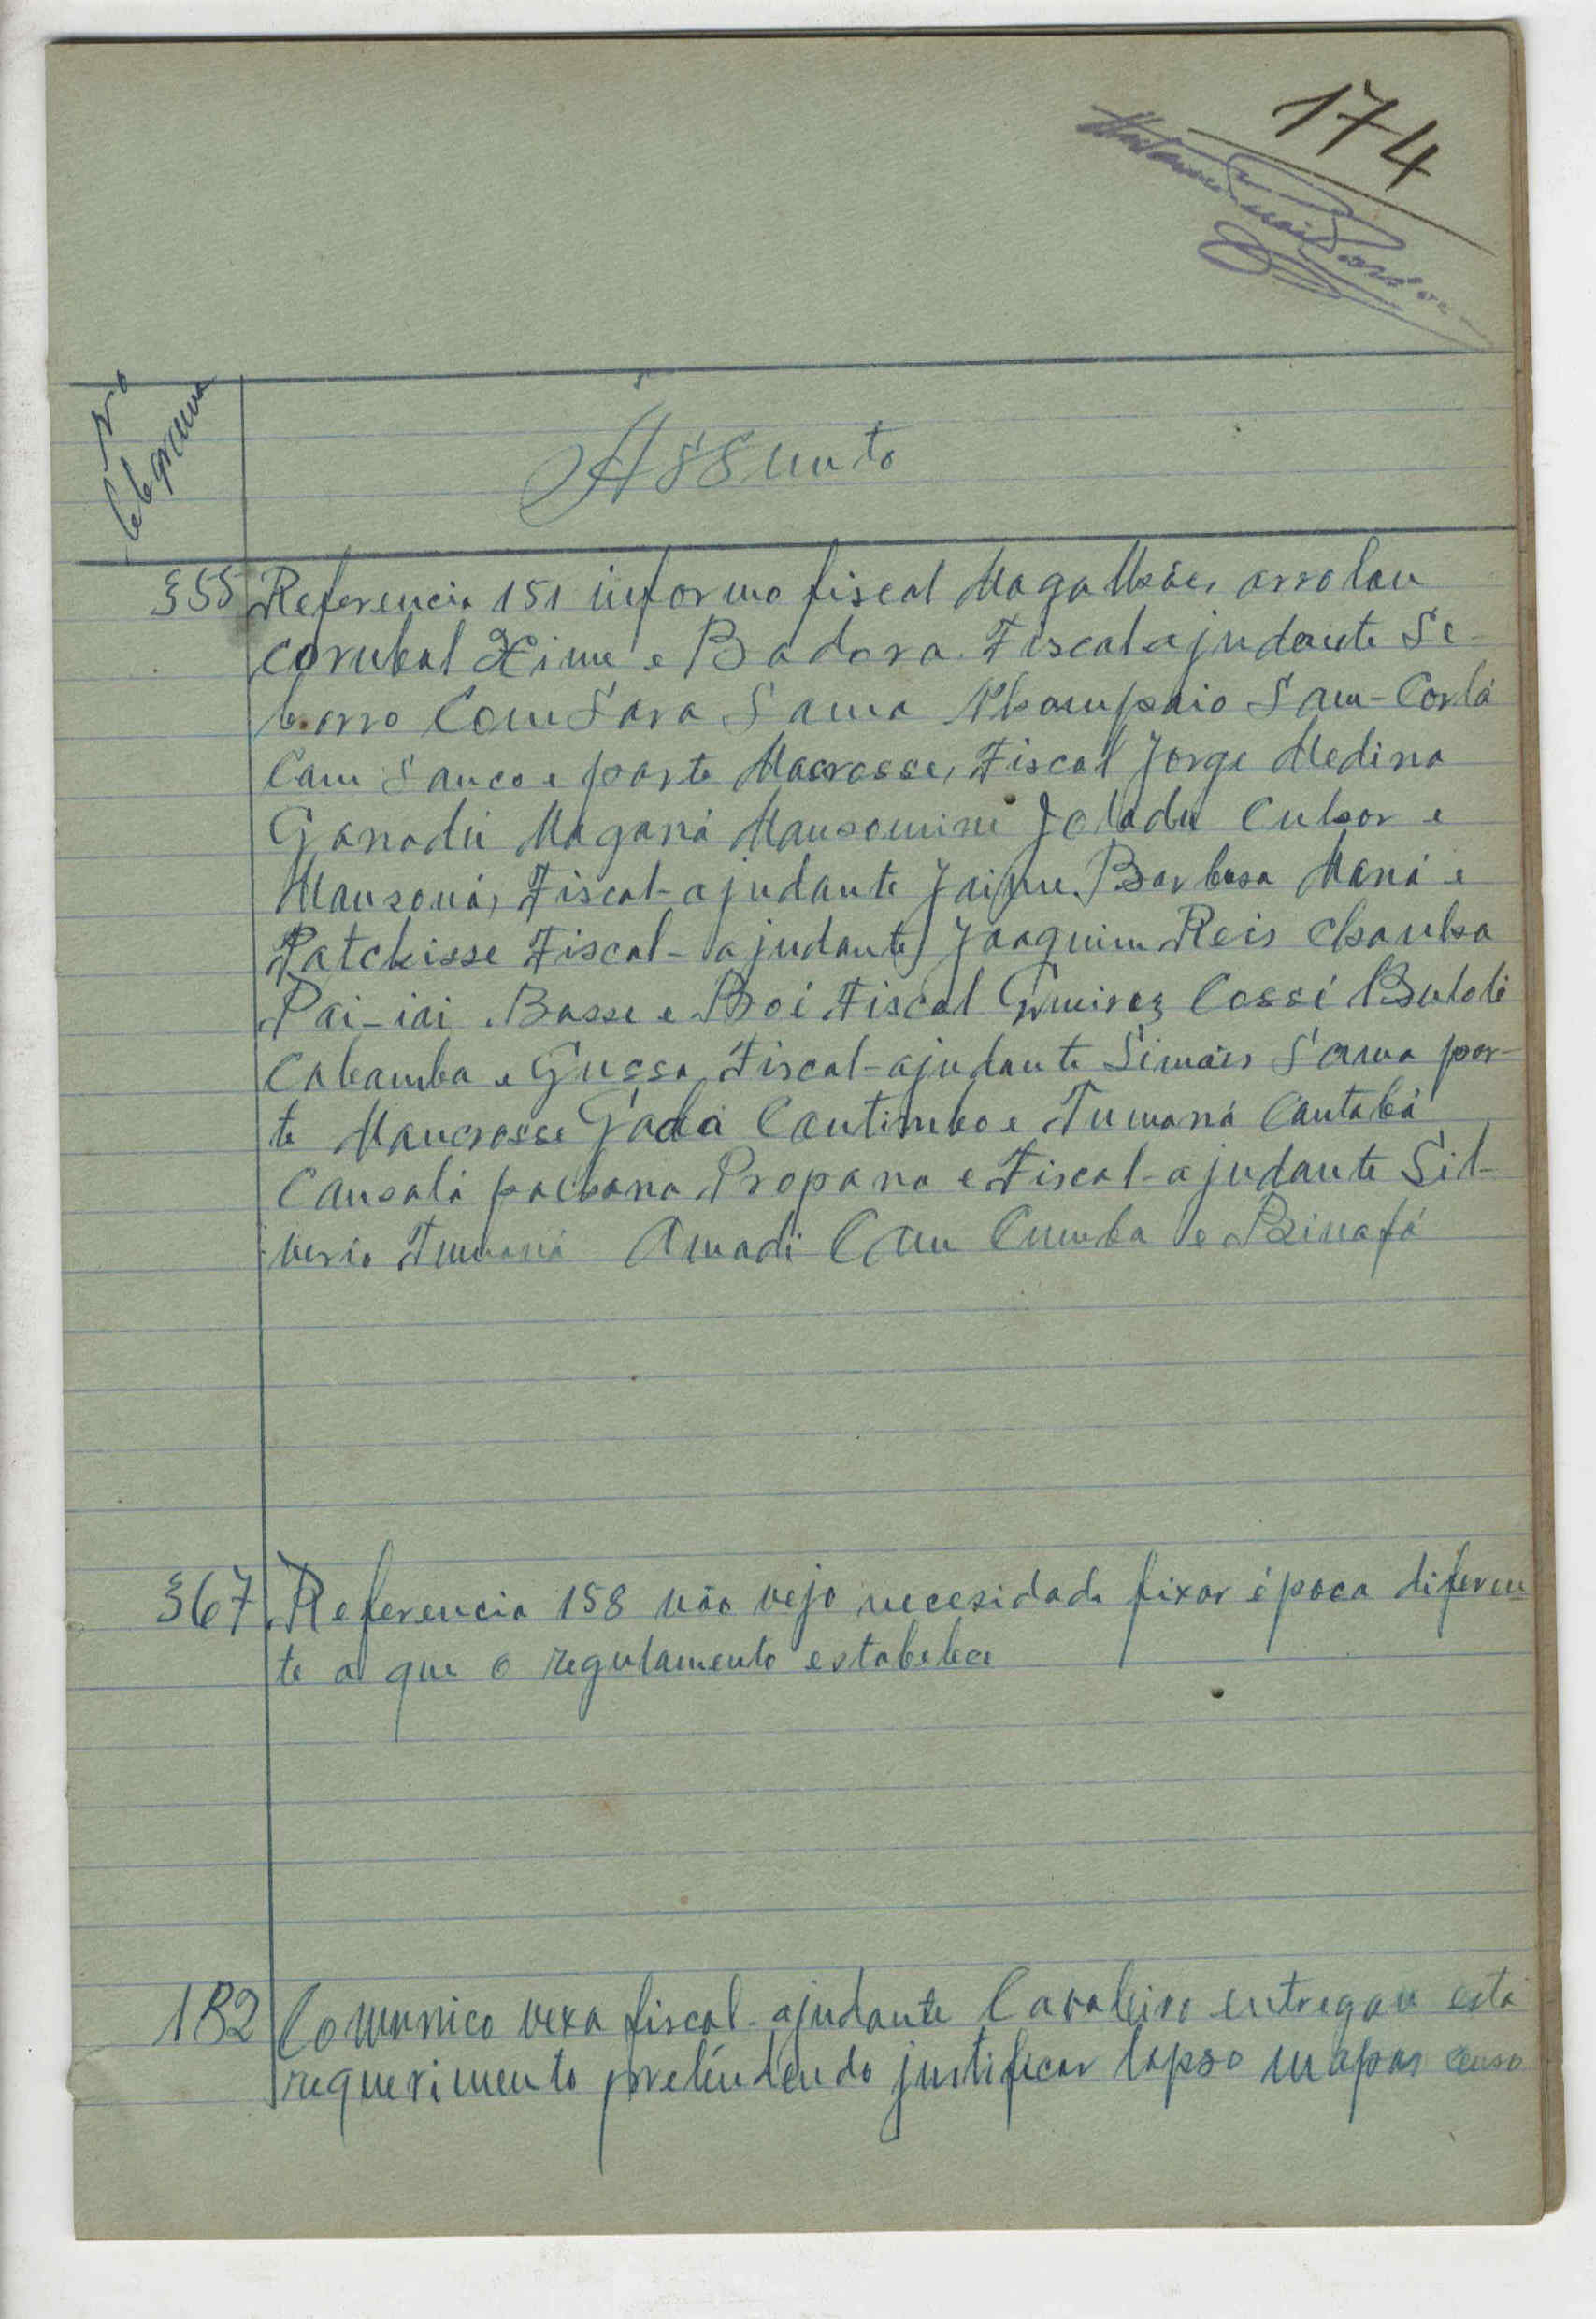 174
No telegrama
Assunto
355 Referencia 151 informo fiscal Magalhães arrolou
corubal Xime e Badora. Fiscal ajudante Se-
borro Com Sara Sama Nhampaio Sam-Corlá
Cam Sanco e parte Macrosse, Fiscal Jorge Medina
Ganadú Maganá Mansomini Joladu Culsor e
Mansoná, Fiscal-ajudante Jaime Barbosa Maná e
Patchisse Fiscal-ajudante Joaquim Reis Chanha
Pai-iai Basse e Boé Fiscal Cossé Bulolé
Cabamba e Gussa Fiscal-ajudante Simões Sama par-
te Mancrosse Gada Cantimbo e Tumaná Cantabá
Cansalá pachana Propana e Fiscal-ajudante Sil-
verio Tumaná Amadi Cam Cumba e Binafá
367 Referencia 158 não vejo necesidade fixar época diferen
te a que o regulamento estabelece
182 Comunico vexa fiscal-ajudante Cavaleiro entregou esta
requerimento pretendendo justificar lapso mapas censo